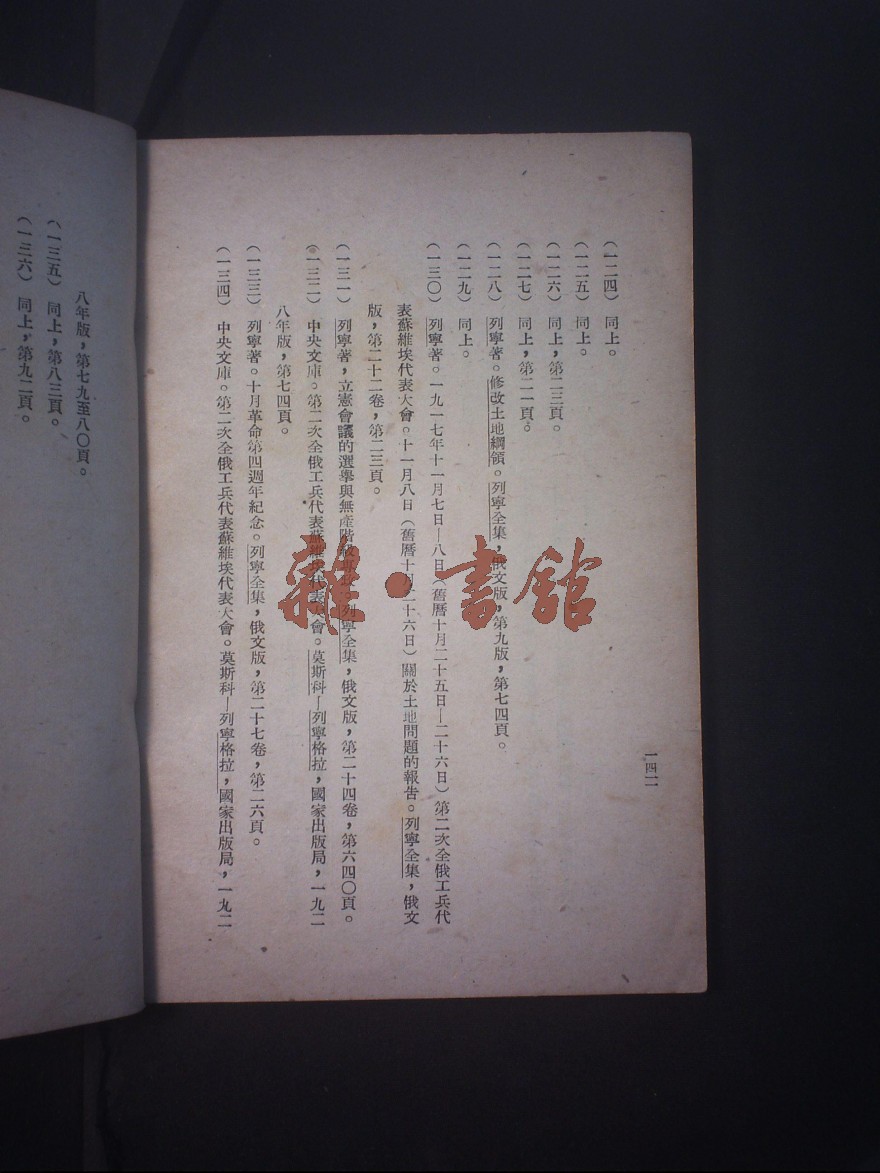 一四二
(一二四) 同上。
(一二五) 同上。
(一二六) 同上,第二三頁。
(一二七) 同上,第二一頁。
(一二八) 列寧著。修改土地綱領。列寧全集,俄文版,第九版,第七四頁。
(一二九) 同上。
(一三〇) 列寧著。一九一七年十一月七日—八日(舊曆十月二十五日—二十六日)第二次全俄工兵代
表蘇維埃代表大會。十一月八日(舊曆十月二十六日)關於土地問題的報告。列寧全集,俄文
版,第二十二卷,第二三頁。
(一三一) 列寧著,立憲會議的選舉與無產階級。列寧全集,俄文版,第二十四卷,第六四〇頁。
(一三二) 中央文庫。第二次全俄工兵代表蘇維埃代表大會。莫斯科—列寧格拉,國家出版局,一九二
八年版,第七四頁。
(一三三) 列寧著。十月革命第四週年紀念。列寧全集,俄文版,第二十七卷,第二六頁。
(一三四) 中央文庫。第二次全俄工兵代表蘇維埃代表大會。莫斯科—列寧格拉,國家出版局,一九二
八年版,第七九至八〇頁。
(一三五) 同上,第八三頁。
(一三六) 同上,第九二頁。
雜·書館